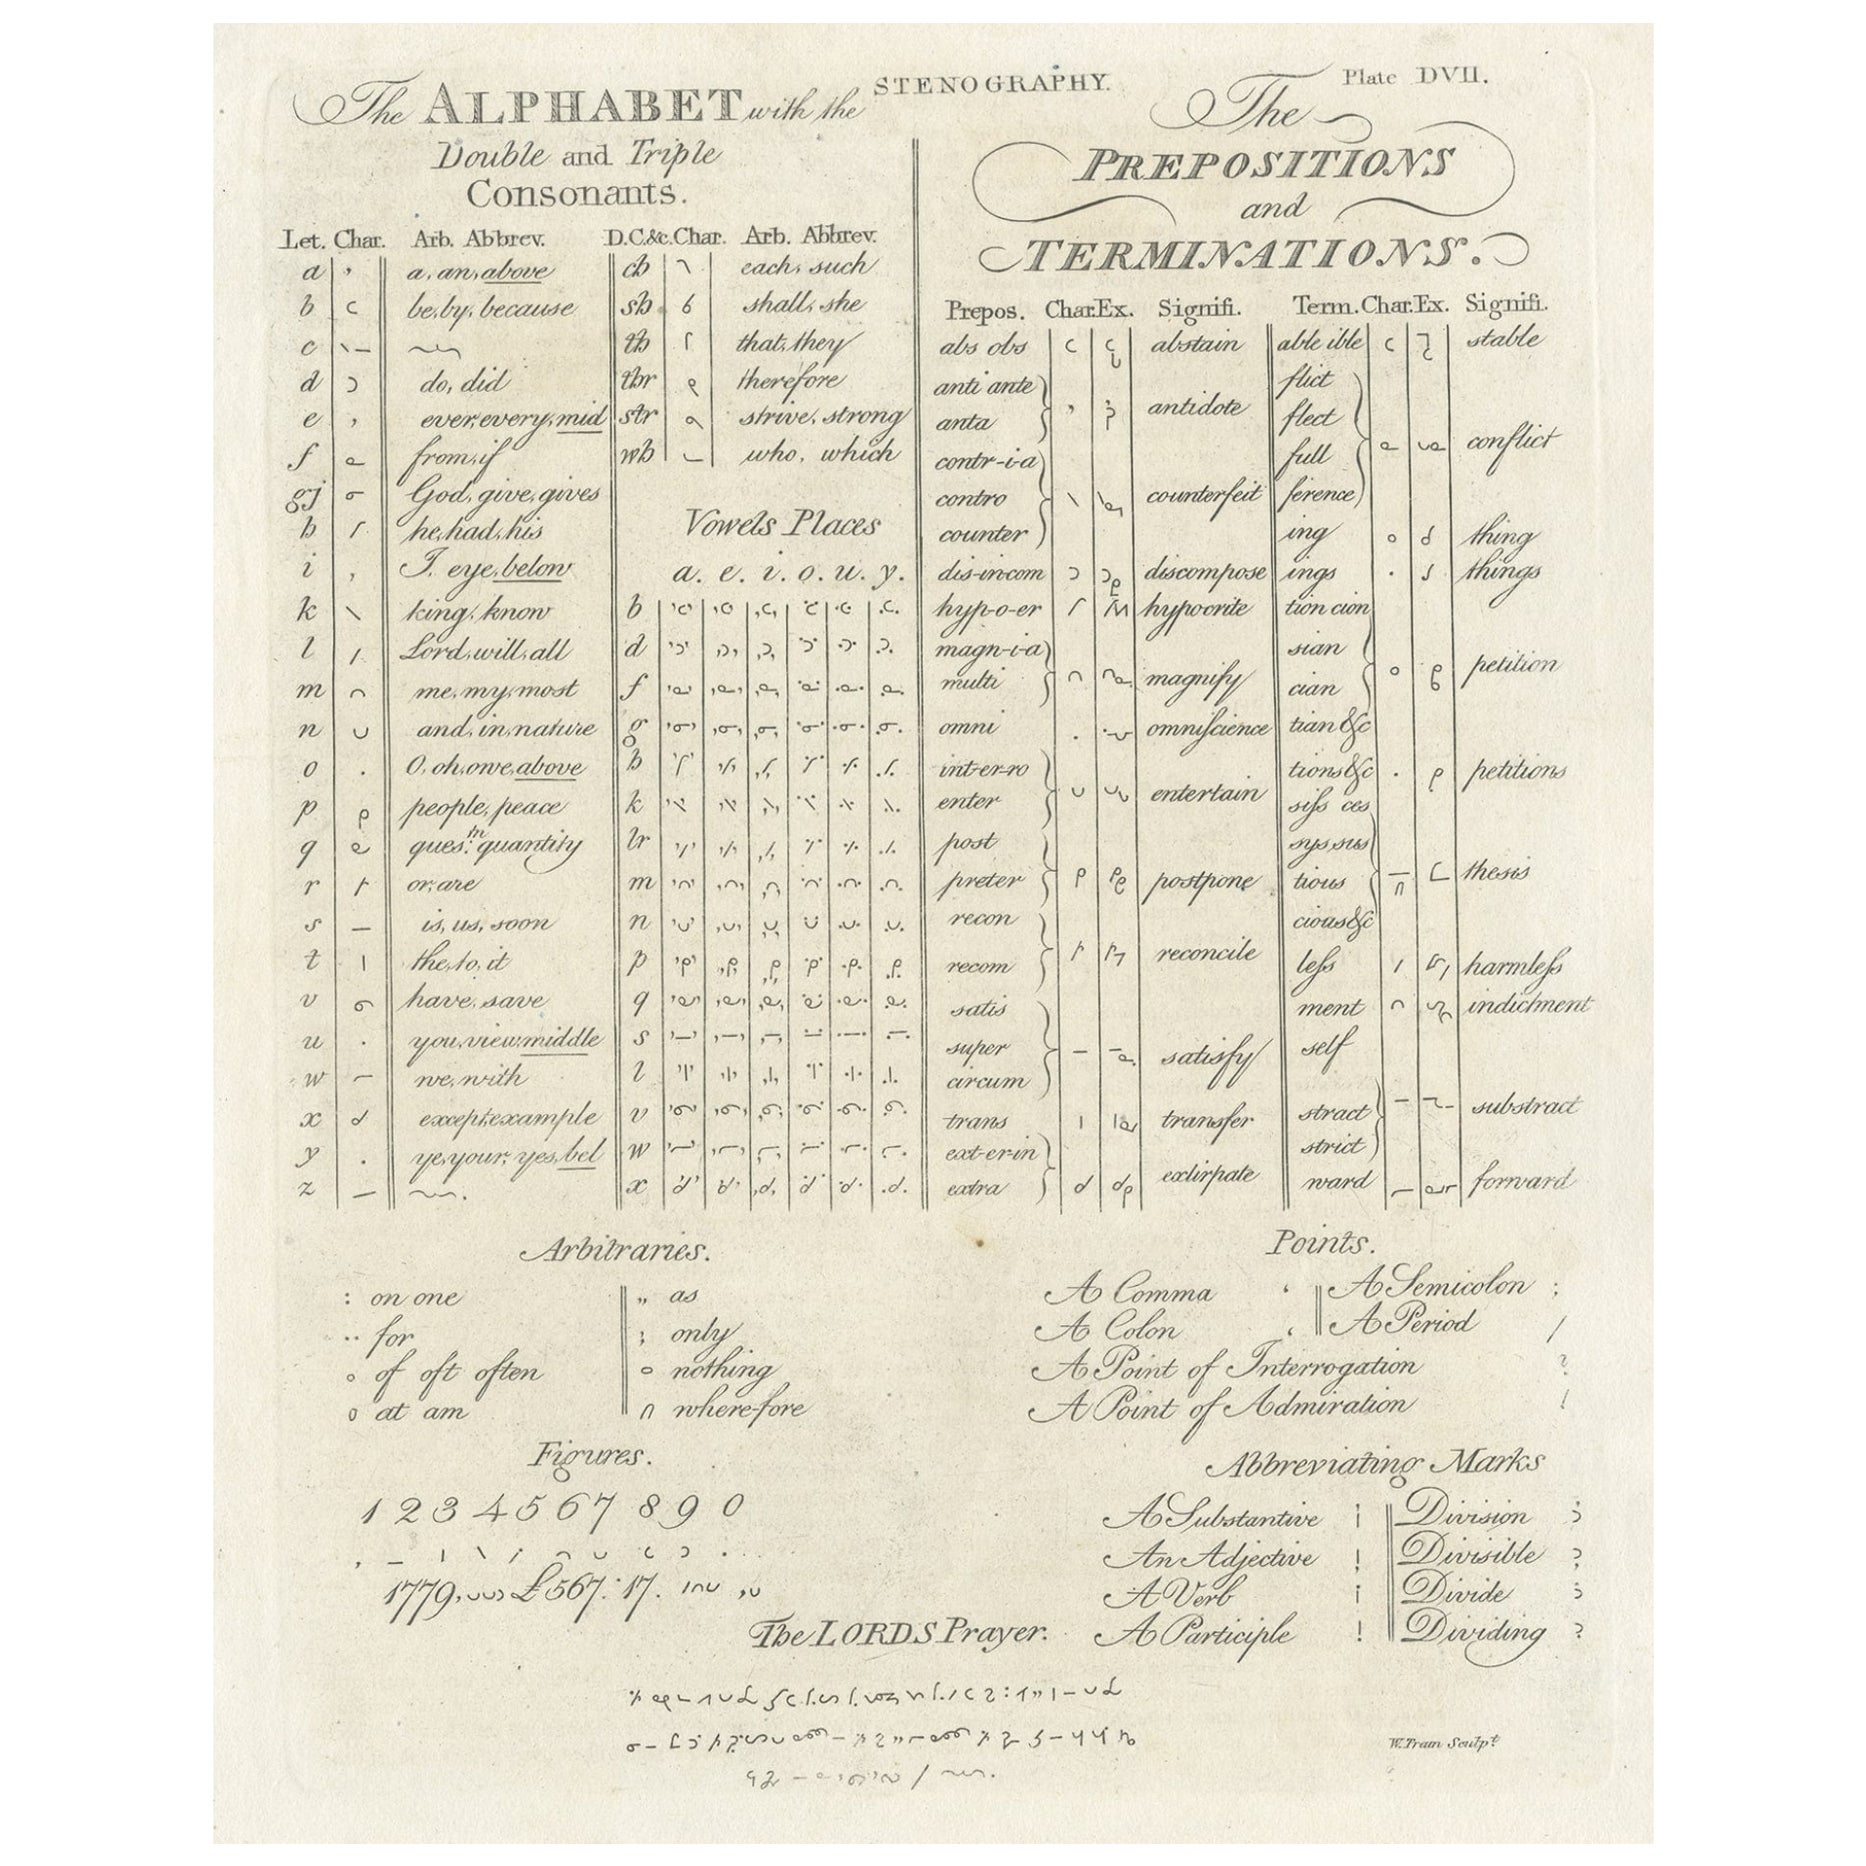 STENOGRAPHY.
Plate DVII.
The ALPHABET with the
Double and Triple
Consonants.
Let. Char. Arb. Abbrev. D.C.&c. Char. Arb. Abbrev.
a a, an, above
b be, by, because
c
d do, did
e ever, every, mid
f from, if
gj God, give, gives
h he, had, his
i I, eye, below
k king, know
l Lord, will, all
m me, my, most
n and, in, nature
o O, oh, owe, above
p people, peace
q ques.tn quantity
r or, are
s is, us, soon
t the, to, it
v have, save
u you, view, middle
w we, with
x except, example
y ye, your, yes, bel
z
ch each, such
sh shall, she
th that, they
thr therefore
str strive, strong
wh who, which
Vowels Places
a. e. i. o. u. y.
b
d
f
g
h
k
lr
m
n
p
q
s
t
v
w
x
The
PREPOSITIONS
and
TERMINATIONS.
Prepos. Char. Ex. Signifi. Term. Char. Ex. Signifi.
abs obs abstain
anti ante
anta
antidote
contr-i-a
contro
counter
counterfeit
dis-in-com discompose
hyp-o-er hypocrite
magn-i-a
multi
magnify
omni omniscience
int-er-ro
enter
entertain
post
preter
postpone
recon
recom
reconcile
satis
super
circum
satisfy
trans transfer
ext-er-in
extra
extirpate
able ible stable
flict
flect
full
ference
conflict
ing thing
ings things
tion cion
sian
cian
tian &c
petition
tions &c petitions
siſs ces
sys sus
tious
cious &c
thesis
leſs harmleſs
ment indictment
self
stract
strict
substract
ward forward
Arbitraries.
: on one
·· for
o of oft often
o at am
" as
; only
o nothing
∩ where-fore
Points.
A Comma ‘ A Semicolon ;
A Colon ‘ A Period /
A Point of Interrogation ?
A Point of Admiration !
Figures.
1 2 3 4 5 6 7 8 9 0
1779, £567: 17.
Abbreviating Marks
A Substantive Division
An Adjective Divisible
A Verb Divide
A Participle Dividing
The LORDS Prayer.
W. Train Sculp.t